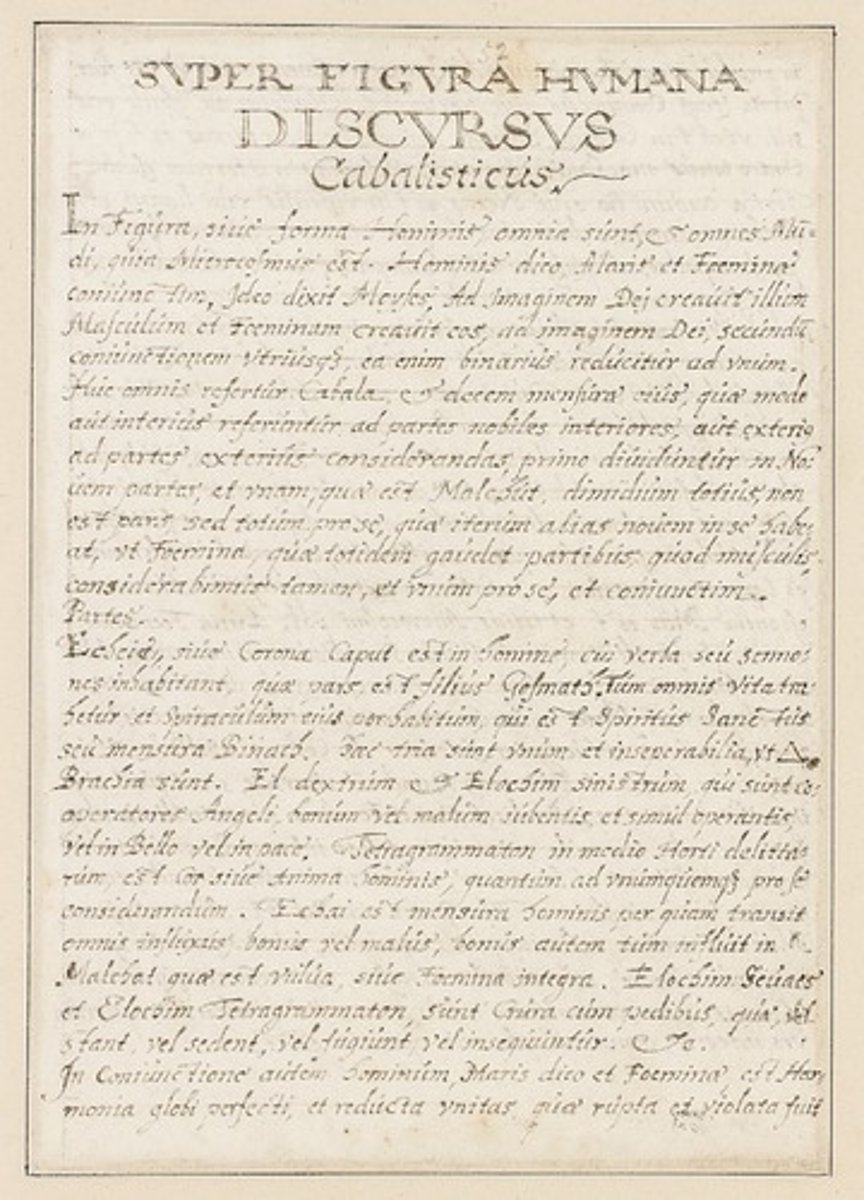 SVPER FIGVRA HVMANA
DISCVRSVS
Cabalisticus.
In Figura, siue forma Hominis, omnia sunt, & omnes Mū-
di, quia Microcosmus est. Hominis dico, Maris et Foeminæ
coniunctim, Ideo dixit Moyses, Ad Imaginem Dej creauit illum
Masculum et Foeminam creauit eos, ad imaginem Dei, secundū
coniunctionem vtriusq3, ea enim binarius reducitur ad vnum.
Huc omnis refertur Cabala, & decem mensuræ eius, quæ modo
aut interius referuntur ad partes nobiles interiores, aut exterig
ad partes exterius considerandas, primo diuiduntur in No-
uem partes, et vnam, quæ est Malchut, dimidium totius, non
est pars, sed totum pro se, quæ iterum alias nouem in se habe-
at, vt Foemina, quæ totidem gaudet partibus, quod musculis,
considerabimus tamen, et vnum pro se, et coniunctim.
Partes.
siue Corona Caput est in homine, cui verba seu sermo-
nes inhabitant, quæ pars est filius Tum omnis vita tra-
hetur et spiraculum eius per habitum, qui est Spiritus Sanctus
seu mensura Binach. hæc tria sunt vnum et inseperabilia, vt △.
Brachia sunt. El dextrum & Elochim sinistrum, qui sunt co-
operatores Angeli, bonum vel malum iubentis, et simul operantis,
vel in Bello vel in pace. Tetragrammaton in medio Horti delitia-
rum, est Cor siue Anima hominis, quantum ad vnumquemq3 pro se
considerandum. Echai est mensura hominis, per quam transit
omnis influxus, bonus vel malus, bonus autem tum influit in
Malchat quæ est vulua, siue Foemina integra. Elochim
et Elochim Tetragrammaton, sunt Crura cum pedibus, quæ, vel
stant, vel sedent, vel fugiunt, vel insequuntur. &c.
In Coniunctione autem hominum, Maris dico et Foeminæ, est Har-
monia globi perfecti, et reducta vnitas, quæ rupta et violata fuit